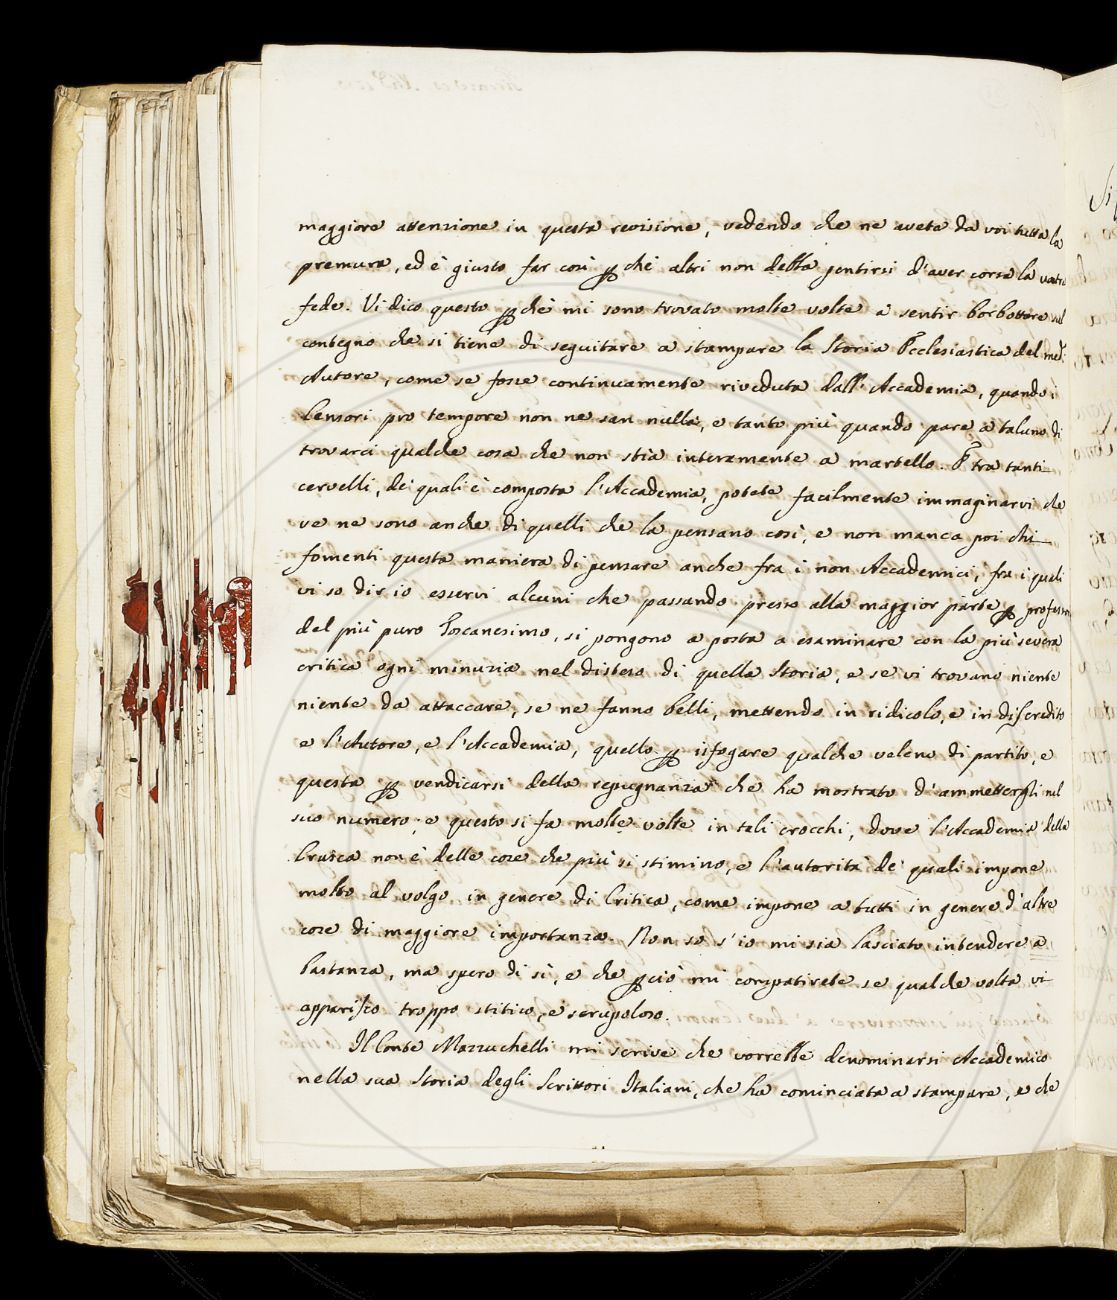 maggiore attenzione in questa revisione, vedendo che ne avete da voi tutta la
premura, ed è giusto far così pchè altri non debba pentirsi d'aver corsa la vostra
fede. Vi dico questo pchè mi sono trovato molte volte a sentir borbottare nel
contegno che si tiene di seguitare a stampare la Storia Ecclesiastica del med.
Autore, come se fosse continuamente riveduta dall'Accademia, quando i
Censori pro tempore non ne san nulla, e tanto più quando pare a taluno di
trovarci qualche cosa che non stia interamente a martello. Tra tanti
cervelli, de' quali è composta l'Accademia, potete facilmente immaginarvi che
ve ne sono anche di quelli che la pensano così, e non manca poi chi
fomenti questa maniera di pensare anche fra i non Accademici, fra i quali
vi so dir io esservi alcuni che passando presso alla maggior parte p professori
del più puro Toscanesimo, si pongono a posta a esaminare con la più severa
critica ogni minuzia nel disteso di quella Storia, e se vi trovano niente
niente da attaccare, se ne fanno belli, mettendo in ridicolo, e in discredito
e l'Autore, e l'Accademia, quello p isfogare qualche veleno di partito, e
questa p vendicarsi della repugnanza che ha mostrato d'ammettergli nel
suo numero; e questo si fa molte volte in tali crocchi, dove l'Accademia della
Crusca non è delle cose che più si stimino, e l'autorità de' quali impone
molto al volgo in genere di Critica, come impone a tutti in genere d'altre
cose di maggiore importanza. Non so s'io mi sia lasciato intendere a
bastanza, ma spero di sì, e che pciò mi compatirete se qualche volta vi
apparisco troppo stitico, e scrupoloso.
Il Conte Mazzuchelli mi scrive che vorrebbe denominarsi Accademico
nella sua Storia degli Scrittori Italiani, che ha cominciata a stampare, e che